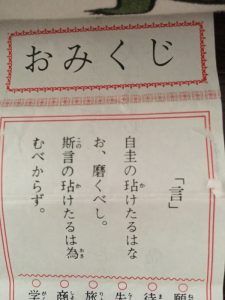 おみくじ
「言」
自圭の玷けたるはな
お、磨くべし。
斯言の玷けたるは為
むべからず。
○願
○待
○失
○旅
○商
○学